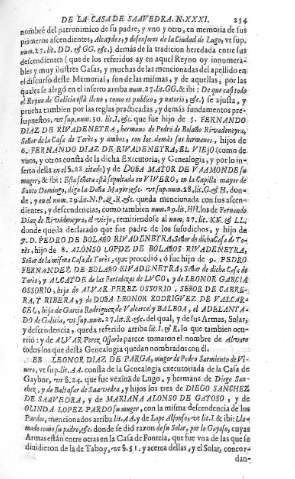 DE LA CASA DE SAAVEDRA N. XXXI. 254
nombre del patronimico de su padre, y vno y otro, en memoria de sus
primeros ascendientes, Alcaydes, y defensores de la Ciudad de Lugo, vt sup.
num. 27. lit. DD. & GG. &c.) demàs de la tradicion heredada entre sus
descendientes (que de los referidos ay en aquel Reyno oy innume-
rables y muy ilustres Casas, y muchas de las mencionadas del apellido en
el discurso deste Memorial, son de las mismas, y de aquellas, por las
quales le alegò en el inserto arriba num. lit. GG. & ibi: De que casi todo
el Reyno de Galicia està lleno, como es publico, y notorio, &c.) se ajusta, y
prueba tambien por las reglas practicadas, y demàs fundamentos pre-
supuestos, vt sup. num. 30. lit. I. &c. que fue hijo de 5. FERNANDO
DIAZ DE RIVADENEYRA, hermano de Pedro de Bolaño Rivadeneyra,
Señor de la Casa de Torès, y ambos, con los demàs sus hermanos, hijos de
6. FERNANDO DIAZ DE RIVADENEYRA, EL VIEJO (como de
vno, y otro consta de la dicha Executoria, y Genealogia, y por lo in-
serto della en el §. 22. citado) y de DOÑA MAYOR DE VAAMONDE su
muger, & ibi: Esta señora està sepultada en VIVERO, en la Capilla mayor de
Santo Domingo, digo la Doña Mayor &c. vt sup. num. 28. lit. G. & H. don-
de, y en el num. 29. lit. N. P. Q. R. &c. queda mencionada con sus ascen-
dientes, y descendencias, como tambien num. 29. lit. HH. los de Fernando
Diaz de Rivadeneyra, el viejo, remitiendolo al num. 27. lit. KK. & LL.
donde queda declarado que fue padre de los susodichos, y hijo de
7. D. PEDRO DE BOLAÑO RIVADENEYRA, Señor de dicha Casa de To-
rès, hijo de 8. ALONSO LOPEZ DE BOLAÑOS RIVADENEYRA,
Señor de la misma Casa de Torès, que procediò, ò fue hijo de 9. PEDRO
FERNANDEZ DE BOLAÑO RIVADENEYRA, Señor de dicha Casa de
Torès, y ALCAYDE de las Fortalezas de LUGO, y de LEONOR GARCIA
OSSORIO, hija de ALVAR PEREZ OSSORIO, SEÑOR DE CABRE-
RA, Y RIBERA, y de DOÑA LEONOR RODRIGVEZ DE VALCAR-
CEL, hija de Garcia Rodriguez, de Valcarcel y BALBOA, el ADELANTA-
DO de Galicia, vt sup. num. 27. lit. R. &c. del qual, y de sus Armas, Solar,
y descendencia, queda referido arriba lit. I. & R. lo que tambien ocu-
rriò: y de ALVAR Perez Ossorio parece tomaron el nombre de Alvaro
todos los que desta Genealogia quedan nombrados con èl.
ES LEONOR DIAZ DE PARGA, muger de Pedro Sarmiento de Vi-
vero, vt sup. lit. AA. consta de la Genealogia executoriada de la Casa de
Gaybor, vt §. 24. que fue vezina de Lugo, y hermana de Diego San-
chez, y de Baltasar de Saavedra, y hijos los tres de DIEGO SANCHEZ
DE SAAVEDRA, y de MARIANA ALONSO DE GAYOSO, y de
OLINDA LOPEZ PARDO su muger, con la misma descendencia de los
Pardos, mencionados arriba lit. AA. y de Lope Alfonso, vt lit. I. & ibi: Lla-
mado como su padre, &c. donde se diò razon de su Solar, por lo Gayoso, cuyas
Armas estàn entre otras en la Casa de Fontela, que fue voz de las que se
dividieron de la de Taboy, vt §. 51. y acerca dellas, y el Solar, concor-
dan-